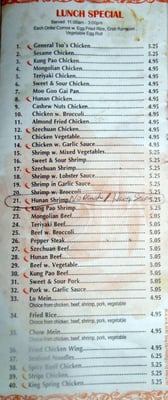 LUNCH SPECIAL
Served 11:00am - 3:00pm
Each Order Comes w. Egg Fried Rice, Crab Rangoon
Vegetable Egg Roll
1. General Tso's Chicken 5.25
2. Sesame Chicken 5.25
3. Kung Pao Chicken 5.25
4. Mongolian Chicken 5.25
5. Teriyaki Chicken 5.25
6. Sweet & Sour Chicken 5.25
7. Moo Goo Gai Pan 5.25
8. Hunan Chicken 5.25
9. Cashew Nuts Chicken 5.25
10. Chicken w. Broccoli 5.25
11. Almond Fried Chicken 4.95
12. Szechuan Chicken 5.25
13. Chicken Vegetable 5.25
14. Chicken w. Garlic Sauce 5.25
15. Shrimp w. Mixed Vegetables 5.25
16. Sweet & Sour Shrimp 5.25
17. Szechuan Shrimp 5.25
18. Shrimp w. Lobster Sauce 5.25
19. Shrimp in Garlic Sauce 5.25
20. Shrimp w. Broccoli 5.25
21. Hunan Shrimp
22. Kung Pao Shrimp 5.25
23. Mongolian Beef 5.25
24. Teriyaki Beef 5.25
25. Beef w. Broccoli 5.25
26. Pepper Steak 5.25
27. Szechuan Beef 5.25
28. Hunan Beef 5.25
29. Beef w. Vegetable 5.25
30. Kung Pao Beef 5.25
31. Sweet & Sour Pork 5.25
32. Pork w. Garlic Sauce 5.25
33. Lo Mein 4.95
Choice from chicken, beef, shrimp, pork, vegetable
34. Fried Rice 4.95
Choice from chicken, beef, shrimp, pork, vegetable
35. Chow Mein 4.95
Choice from chicken, beef, shrimp, pork, vegetable
36. Fried Chicken Wing 4.95
37. Seafood Noodles
38. Spicy Basil Chicken
39. Chicken
40. King Spring Chicken 5.25